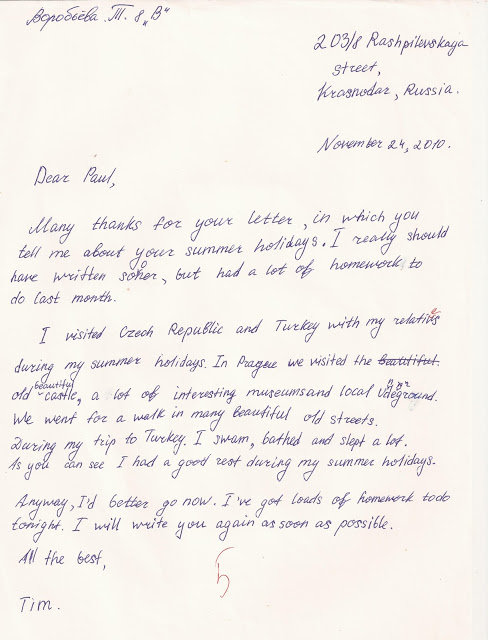 Воробьёва. Т. 8 „В"
203/8 Rashpilevskaya
street,
Krasnodar, Russia.
November 24, 2010.
Dear Paul,
Many thanks for your letter, in which you
tell me about your summer holidays. I really should
have written sooner, but had a lot of homework to
do last month.
I visited Czech Republic and Turkey with my relatives
during my summer holidays. In Prague we visited the beautiful.
old beautiful castle, a lot of interesting museums and local underground.
We went for a walk in many beautiful old streets.
During my trip to Turkey. I swam, bathed and slept a lot.
As you can see I had a good rest during my summer holidays.
Anyway, I'd better go now. I've got loads of homework todo
tonight. I will write you again as soon as possible.
All the best,
5
Tim.